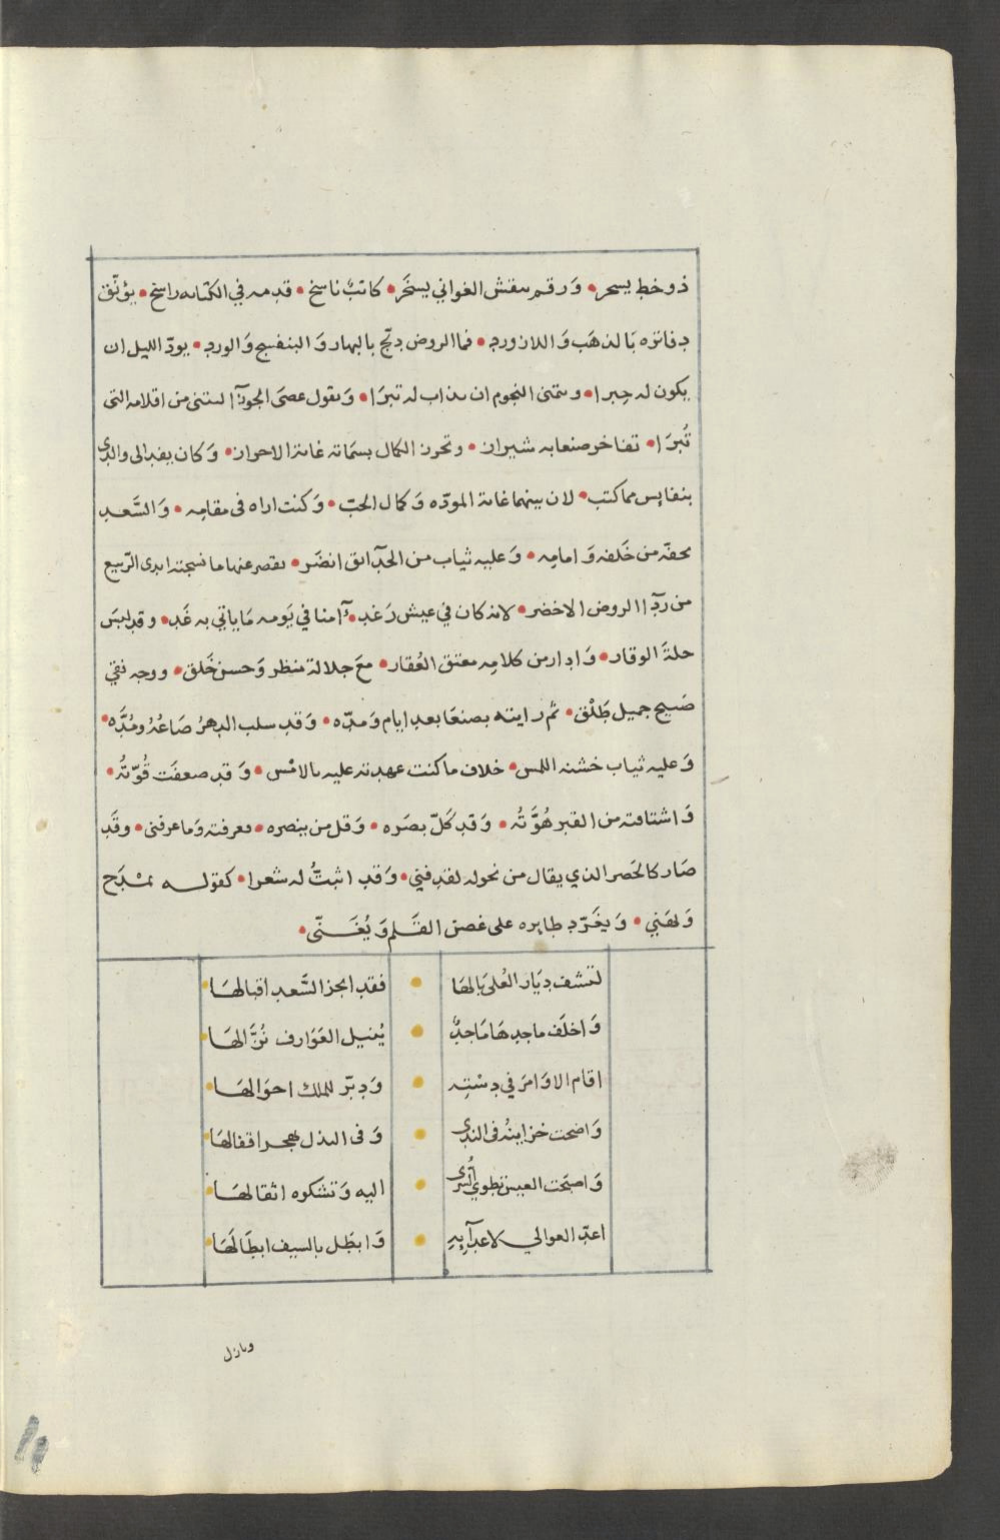 ذو خط يسحر • وَرقم بنقش الغواني يسخَر • كاتبٌ ناسخ • قدمه في الكتابه راسخ • يؤنّق
دفاتره بَالذهَب وَاللازورد • فما الروض دبّج بالبهار وَالبنفسج وَالورد • يودّ الليل ان
يكون له حِبرا • وتتمنى النجوم ان تذاب له تبرَا • وَتقول عصَى الجوزآ ليتنى من اقلامه التى
تُبرَا • تفاخر صنعا به شيراز • وتحرز الكمال بسمَاته غاية الاحراز • وَكان يفد الى والدى
بنفايس مما كتب • لان بينهما غاية المودّه وَكمال الحبّ • وَكنت اراه فى مقامِه • وَالسَّعد
يحفّه من خَلفه وَامامِه • وَعليه ثياب من الحدآئق انضَر • تقصر عنها ما نسجته ايدى الرّبيع
من ردآ الروض الاخضر • لانه كان في عيش رَغد • آمنا في يَومه مَا ياتي به غَد • وقد لبسَ
حلةَ الوقار • وَادار من كلامِه معتق العُقار • معَ جلالة منظر وَحسن خَلق • ووجه نقي
صَبيح جميل طَلْق • ثم رايته بصنعَا بعد ايام وَمدّه • وَقد سلب الدهرُ صَاعَهُ ومُدَّه •
وَعليه ثياب خشنه اللمس • خلاف ما كنت عهدته عليه بالامْس • وَقد ضعفَت قُوّتُه •
وَاشتاقته من القبر هُوَّتُه • وَقد كَلّ بصَره • وَقل من ينصره • فعرفته وَما عرفنى • وقَد
صَار كالخَصر الذي يقال من نحوله لقد فني • وَقد اثبتُّ له شعرا • كقولـه يمْدَح
وَيهَني • وَيغَرّد طايره على غصن القَلم وَيُغَـنّى •
لتشف ديَار العُلى بَالهَا • فقد انجز السَّعد اقبالهَـا
وَاخلَف ماجدهَا مَاجدٌ • يُنيل العَوَارف نُزَّالهَـا
اقام الاوَامرَ في دسْتِه • وَدبّر للملك احوَالهَـا
وَاضحت خزاينُه فى الندى • وَفى البذل هجر اقفالهَا
وَاصبَحت العيس تطوي السُّرى • اليه وَتشكوه اثقالهَـا
اعدّ العوالي لاعدآيِهِ • وَابطَل بالسيف ابطَالَهَا
ونازل